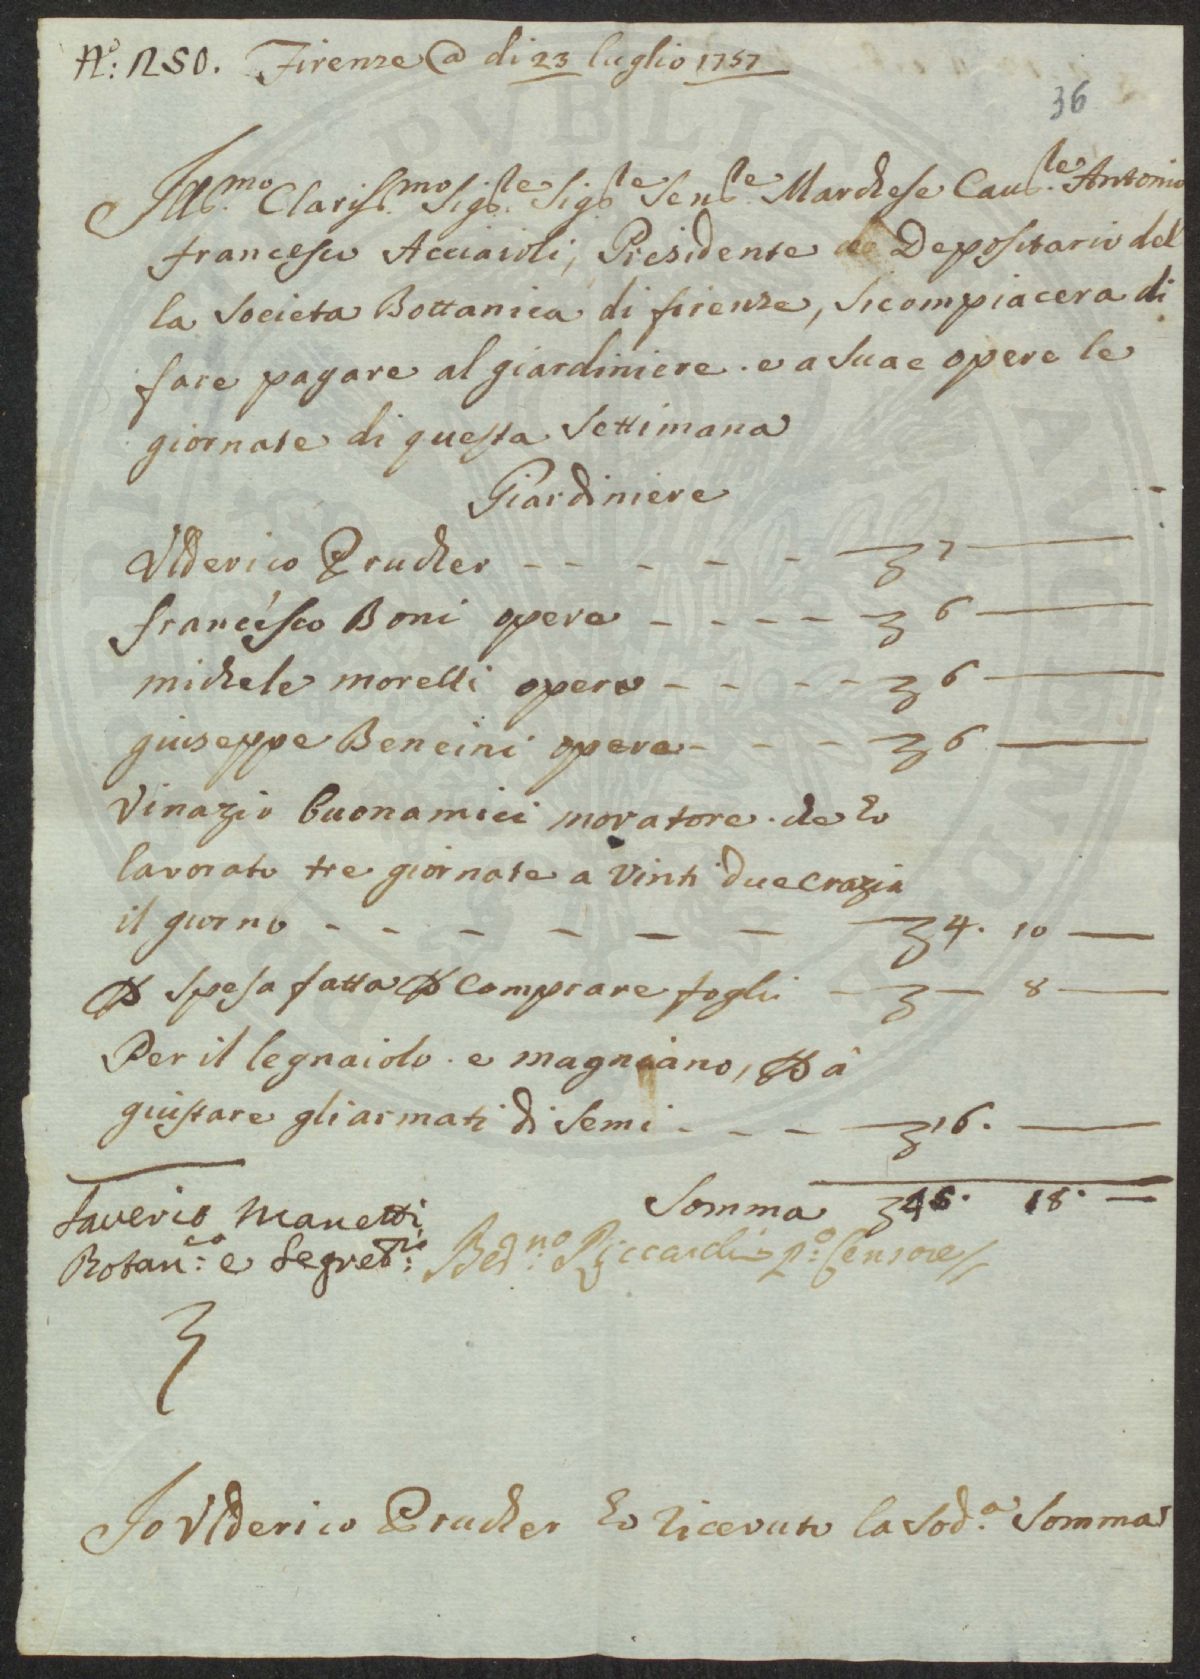 N.º: 1250. Firenze @ di 23 luglio 1757
36
Ill.mo Clariss.mo Sig.le Sig.le Sen.le Marchese Cau.le Antonio
francesco Acciaioli, Presidente Depositario del
la Societa Bottanica di firenze, si compiacera di
fare pagare al giardiniere. e a Suae opere le
giornate di questa Settimana
Giardiniere
Vlderico Prucher - - - - - 7 —
francesco Boni opera - - - - 6 —
michele morelli opera - - - - 6 —
giuseppe Bencini opera - - - 6 —
Vinazio buonamici moratore. che ho
lavorato tre giornate a Vinti due crazia
il giorno - - - - - - 4. 10 —
P spesa fatta P Comprare fogli — — 8 —
Per il legnaiolo. e magniano, P a
giustare gli armati di Semi - - - 16. —
Somma 45. 18. —
Saverio Manetti
Botan.co: e Segret.rio:
Bed.no Riccardi p.o Censore
Io Vlderico Prucher ho ricevuto la Sod.a Somma
PVBLIC